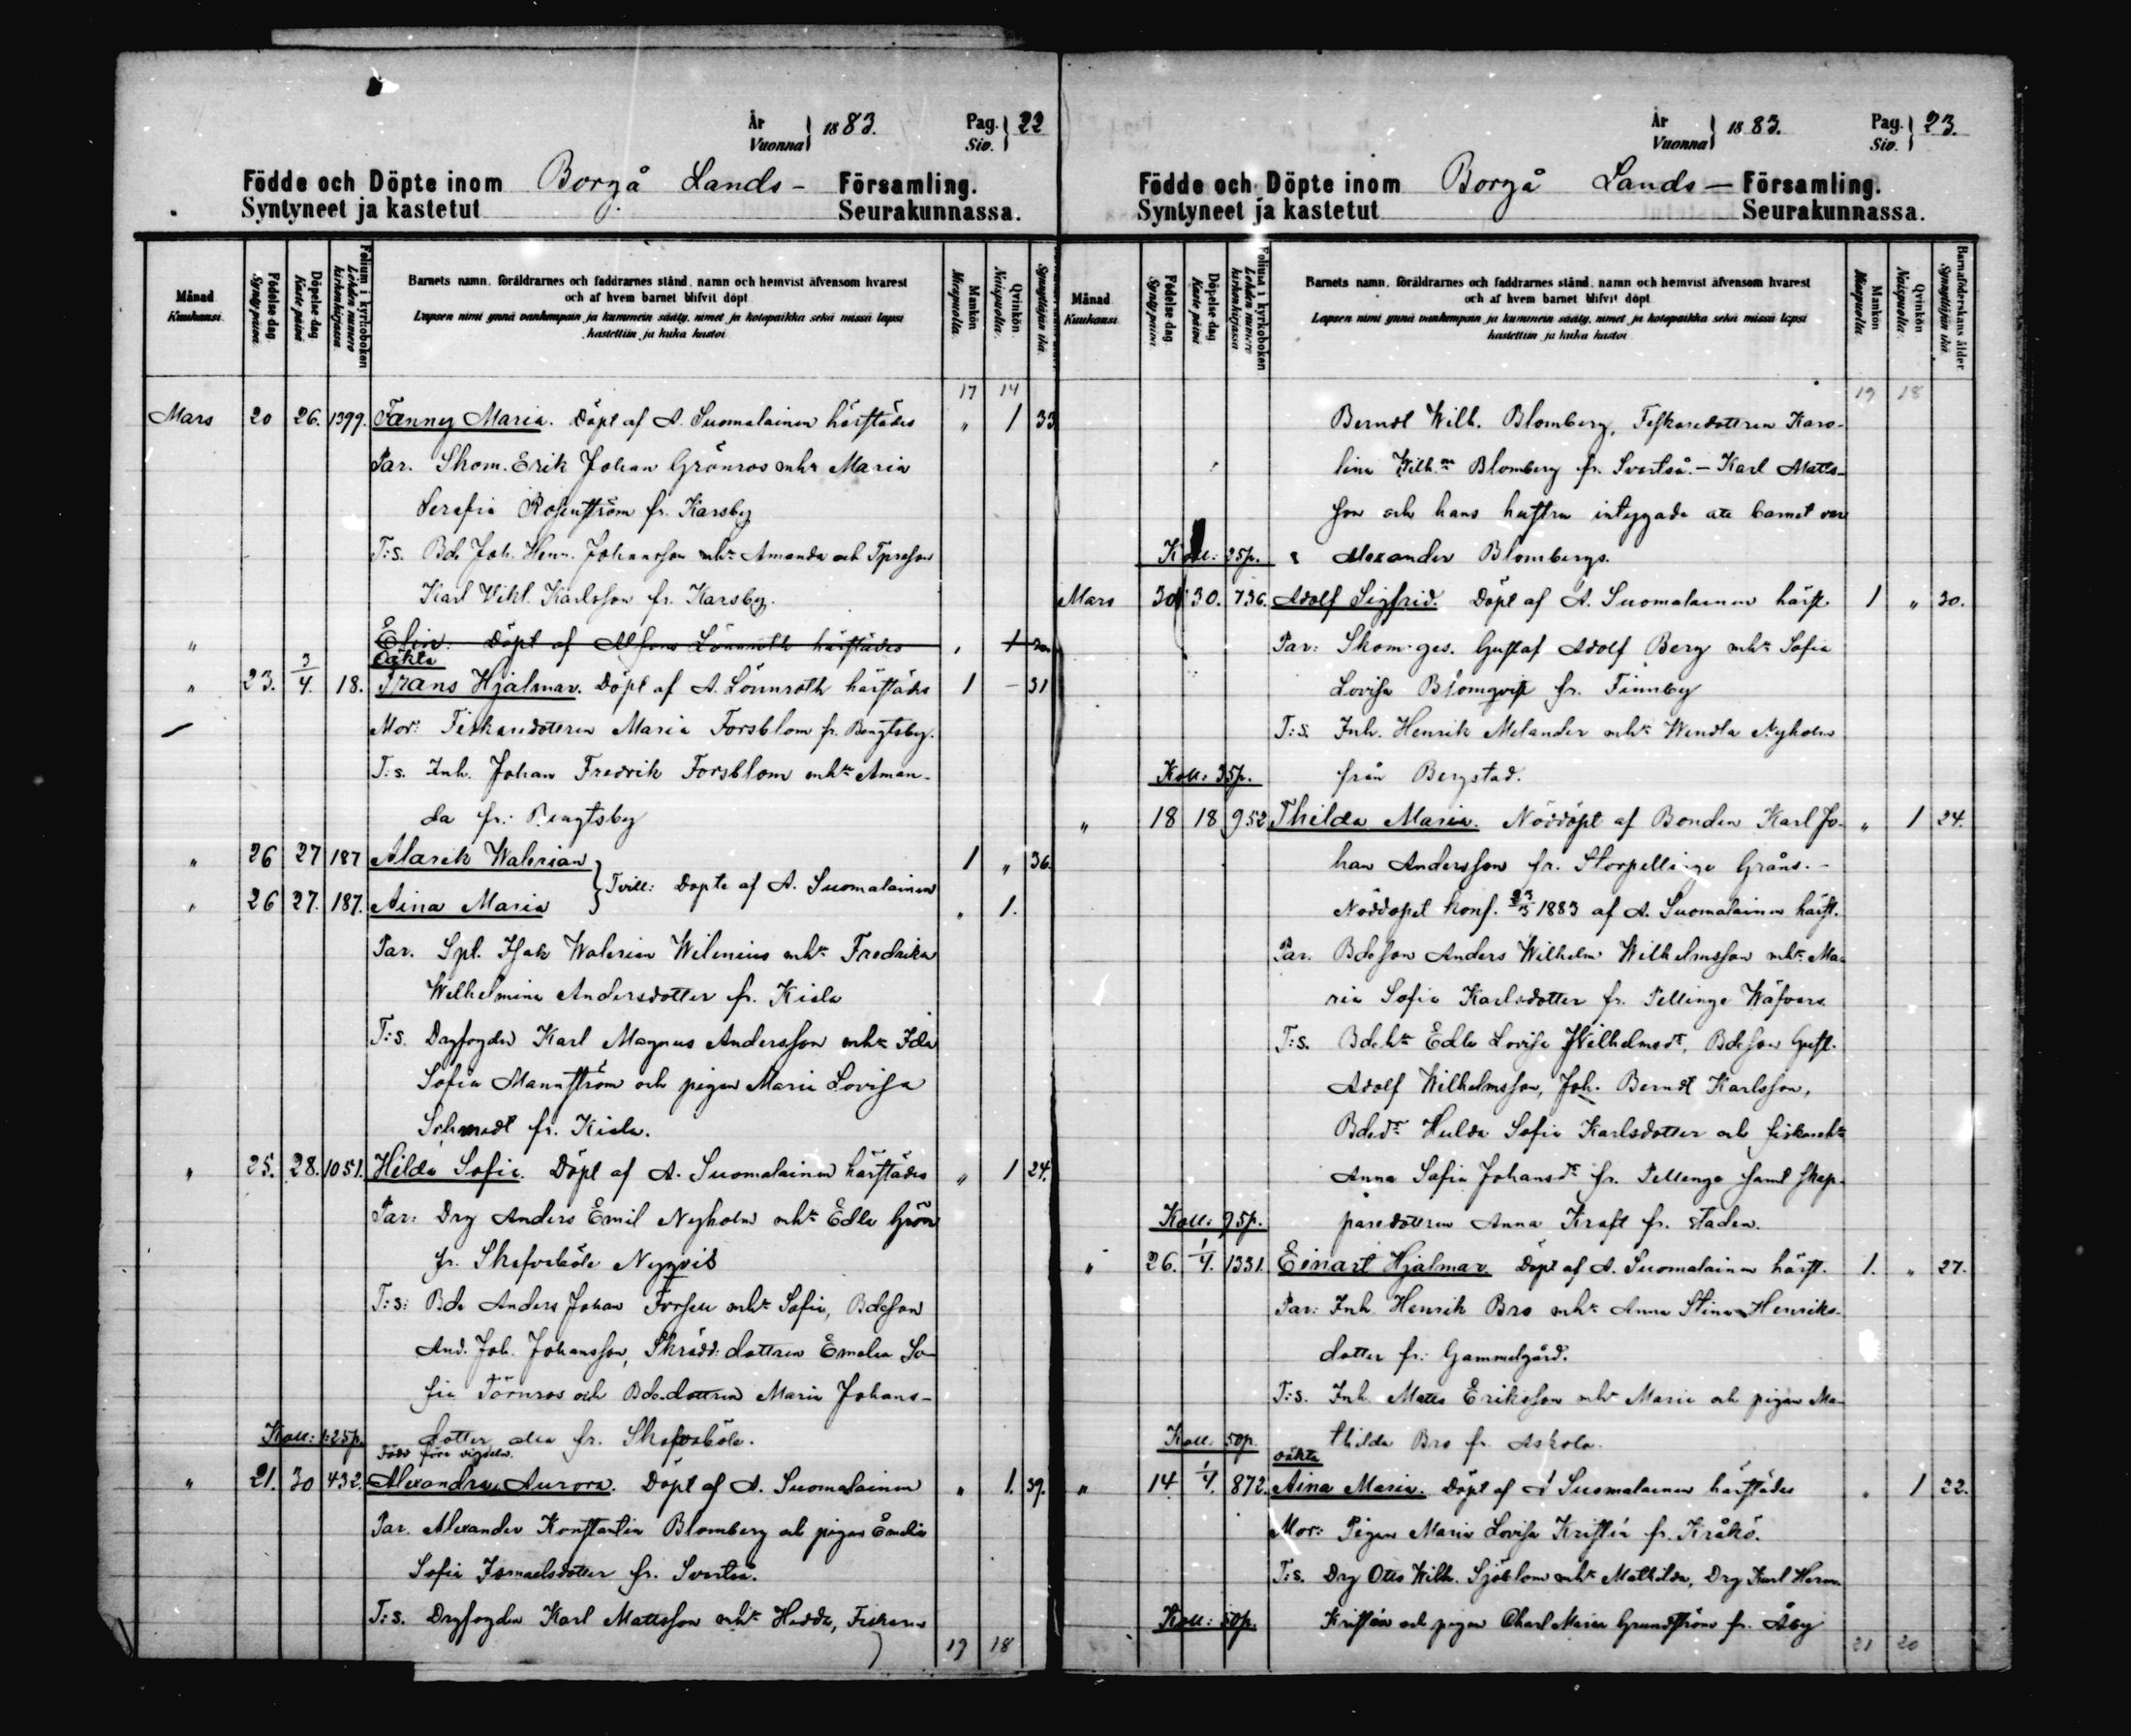 År
Vuonna
1883.
Pag.
Siv.
22
Födde och Döpte inom Borgå Lands- Församling.
Syntyneet ja kastetut Seurakunnassa.
Månad
Kuukausi
Födelse dag
Synty päivä
Döpelse dag
Kaste päivä
Folium i kyrkoboken
Lehden numero kirkonkirjassa
Barnets namn, föräldrarnes och faddrarnes stånd, namn och hemvist äfvensom hvarest
och af hvem barnet blifvit döpt
Lapsen nimi ynnä vanhempain ja kummein sääty, nimet ja kotopaikka sekä missä lapsi
kastettiin ja kuka kastoi
Mankön
Miespuolia
Qvinkön
Naispuolia
Synnyttäjän ikä
17 14
Mars 20 26. 1399. Fanny Maria. Döpt af A. Suomalainen härstädes " 1 33
Par. Skom. Erik Johan Grönros m. h:u Maria
Serafia Rosenström fr. Karsby
T:s. Bde Joh. Henr. Johansson m. h:u Amanda och Tpreson
Karl Vikt. Karlsson fr. Karsby.
" Elin. Döpt af Alfons Lönnroth härstädes , 1
oäkta
" 23. 3/4. 18. Frans Hjalmar. Döpt af A. Lönnroth härstädes 1 - 31
Mor: Fiskaredottren Maria Forsblom fr. Bengtsby.
T:s. Inh. Johan Fredrik Forsblom m. h:u Aman-
da fr. Bengtsby
" 26 27 187 Alarik Walerian 1 " 36.
Tvill: Döpte af A. Suomalainen
" 26 27. 187. Aina Maria " 1.
Par. Spl. Isak Walerian Wilenius m. h:u Fredrika
Wilhelmina Andersdotter fr. Kiala
T:s. Dagfogden Karl Magnus Andersson m. h:u Ida
Sofia Mannström och pigan Maria Lovisa
Schmidt fr. Kiala.
" 25. 28. 1051. Hilda Sofia. Döpt af A. Suomalainen härstädes " 1 24.
Par: Drg Anders Emil Nyholm m. h:u Edla Grön
fr. Skafvaböle Nyqvis
T:s: Bde Anders Johan Forsell m. h:u Sofia, Bdeson
And. Joh. Johansson, Skrädd: dottren Emelia So-
fia Törnros och Bde-dottren Maria Johans-
Koll: 1:25p. dotter alla fr. Skafvaböle.
Född före vigseln.
" 21. 30 432. Alexandra Aurora. Döpt af A. Suomalainen " 1. 39.
Par. Alexander Konstantin Blomberg och pigan Emelia
Sofia Ismaelsdotter fr. Svartså.
T:s. Dagfogden Karl Mattsson m. h:u Hedda, Fiskaren
19 18
År
Vuonna
1883.
Pag.
Siv.
23.
Födde och Döpte inom Borgå Lands- Församling.
Syntyneet ja kastetut Seurakunnassa.
Månad
Kuukausi
Födelse dag
Synty päivä
Döpelse dag
Kaste päivä
Folium i kyrkoboken
Lehden numero kirkonkirjassa
Barnets namn, föräldrarnes och faddrarnes stånd, namn och hemvist äfvensom hvarest
och af hvem barnet blifvit döpt
Lapsen nimi ynnä vanhempain ja kummein sääty, nimet ja kotopaikka sekä missä lapsi
kastettiin ja kuka kastoi
Mankön
Miespuolia
Qvinkön
Naispuolia
Barnaföderskans ålder
Synnyttäjän ikä
19 18
Berndt Wilh. Blomberg, Fiskaredottren Karo-
lina Wilh:na Blomberg fr. Svartså. - Karl Matts-
son och hans hustru intygade att barnet var
Koll: 25p. Alexander Blombergs.
Mars 30 30. 736. Adolf Sigfrid. Döpt af A. Suomalainen härst. 1 " 30.
Par: Skom. ges. Gustaf Adolf Berg m. h:u Sofia
Lovisa Blomqvist fr. Finnby
T:s. Inh. Henrik Melander m. h:u Wendla Nyholm
Koll: 35p. från Bergstad.
" 18 18 952 Thilda Maria. Nöddöpt af Bonden Karl Jo- " 1 24.
han Andersson fr. Storpellinge Gräns. -
Nöddopet konf. 23/3 1883 af A. Suomalainen härst.
Par. Bdeson Anders Wilhelm Wilhelmsson m. h:u Ma-
ria Sofia Karlsdotter fr. Pellinge Wäfvars
T:s. Bdeh:u Edla Lovisa Wilhelmsd:r, Bdeson Gust.
Adolf Wilhelmsson, Joh. Berndt Karlsson,
Bded:r Hulda Sofia Karlsdotter och fiskareh:u
Anna Sofia Johansd:r fr. Pellinge samt skep-
Koll: 95p. paredottren Anna Kraft fr. staden.
" 26. 1/4. 1331. Einart Hjalmar Döpt af A. Suomalainen härst. 1. " 27.
Par: Inh. Henrik Bro m. h:u Anna Stina Henriks-
dotter fr. Gammelgård.
T:s. Inh. Matts Eriksson m. h:u Maria och pigan Ma-
Koll: 50p. thilda Bro fr. Askola.
oäkta
" 14 1/4. 872. Aina Maria. Döpt af A Suomalainen härstädes " 1 22.
Mor: Pigan Maria Lovisa Kristin fr. Kråkö.
T:s. Drg Otto Wilh. Sjöblom m. h:u Mathilda, Drg Karl Herm.
Koll: 50p. Kristin och pigan Charl Maria Grundström fr. Åby
21 20